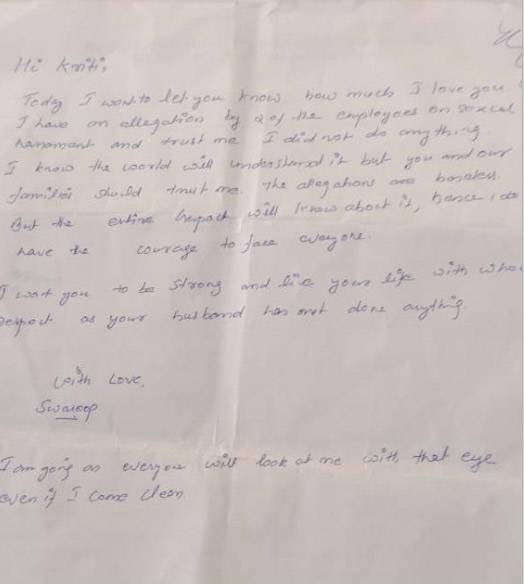 Hi Kriti,
Today I want to let you know how much I love you
I have an allegation by 2 of the employees on sexual
harrasment and trust me I did not do anything
I know the world will understand it but you and our
families should trust me. The allegations are baseless.
But the entire will know about it, hence I do
have the courage to face everyone.
I want you to be strong and live your life with
respect as your husband has not done anything
With Love,
Swaroop
I am going as everyone will look at me with that eye
even if I come clean